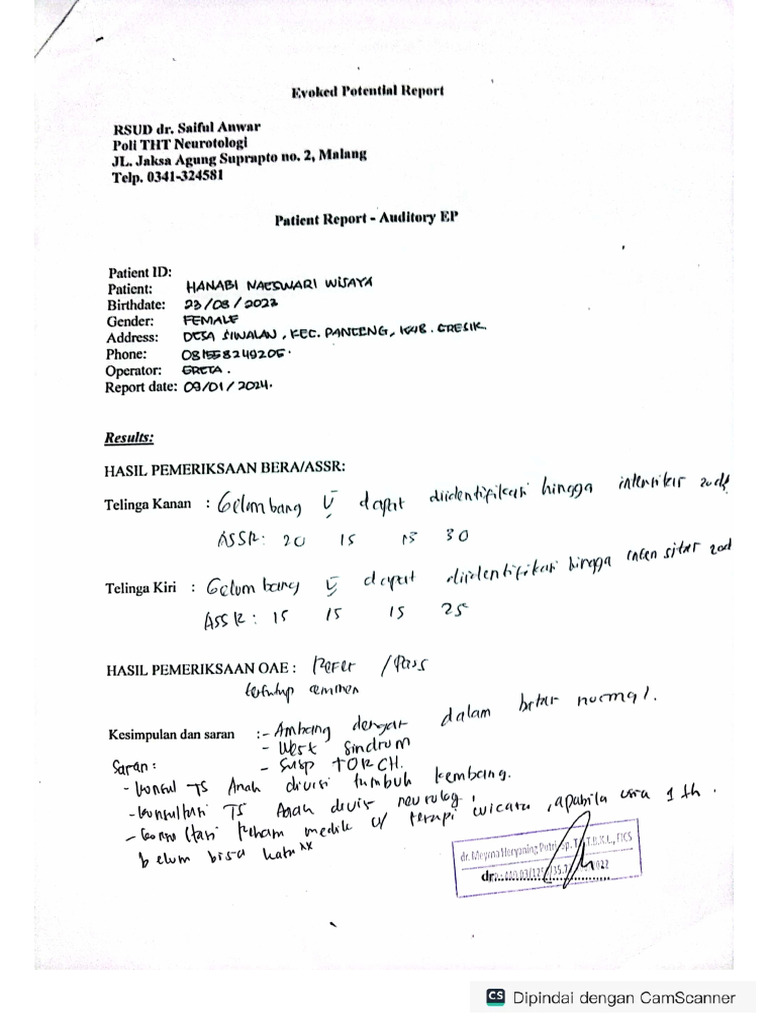 Evoked Potential Report
RSUD dr. Saiful Anwar
Poli THT Neurotologi
JL. Jaksa Agung Suprapto no. 2, Malang
Telp. 0341-324581
Patient Report - Auditory EP
Patient ID:
Patient: HANABI NAESWARI WIJAYA
Birthdate: 23/08/2022
Gender: FEMALE
Address: DESA SIWALAN, KEC. PANCENG, KAB. GRESIK.
Phone:
Operator: GRETA.
Report date: 09/01/2024.
Results:
HASIL PEMERIKSAAN BERA/ASSR:
Telinga Kanan : Gelombang V dapat diidentifikasi hingga intensitas 20dB
ASSR: 20 15 15 30
Telinga Kiri : Gelombang V dapat diidentifikasi hingga intensitas 20d
ASSR: 15 15 15 25
HASIL PEMERIKSAAN OAE : Refer / Pass
tertutup cerumen
Kesimpulan dan saran :- Ambang dengar dalam batas normal.
- West Sindrom
Saran: - Susp TORCH.
- Konsul TS Anak divisi tumbuh kembang.
- Konsultasi TS Anak divisi neurologi
- Konsultasi Rehab medik u/ terapi wicara, apabila usia 2 th.
belum bisa kata xx
dr.
Dipindai dengan CamScanner